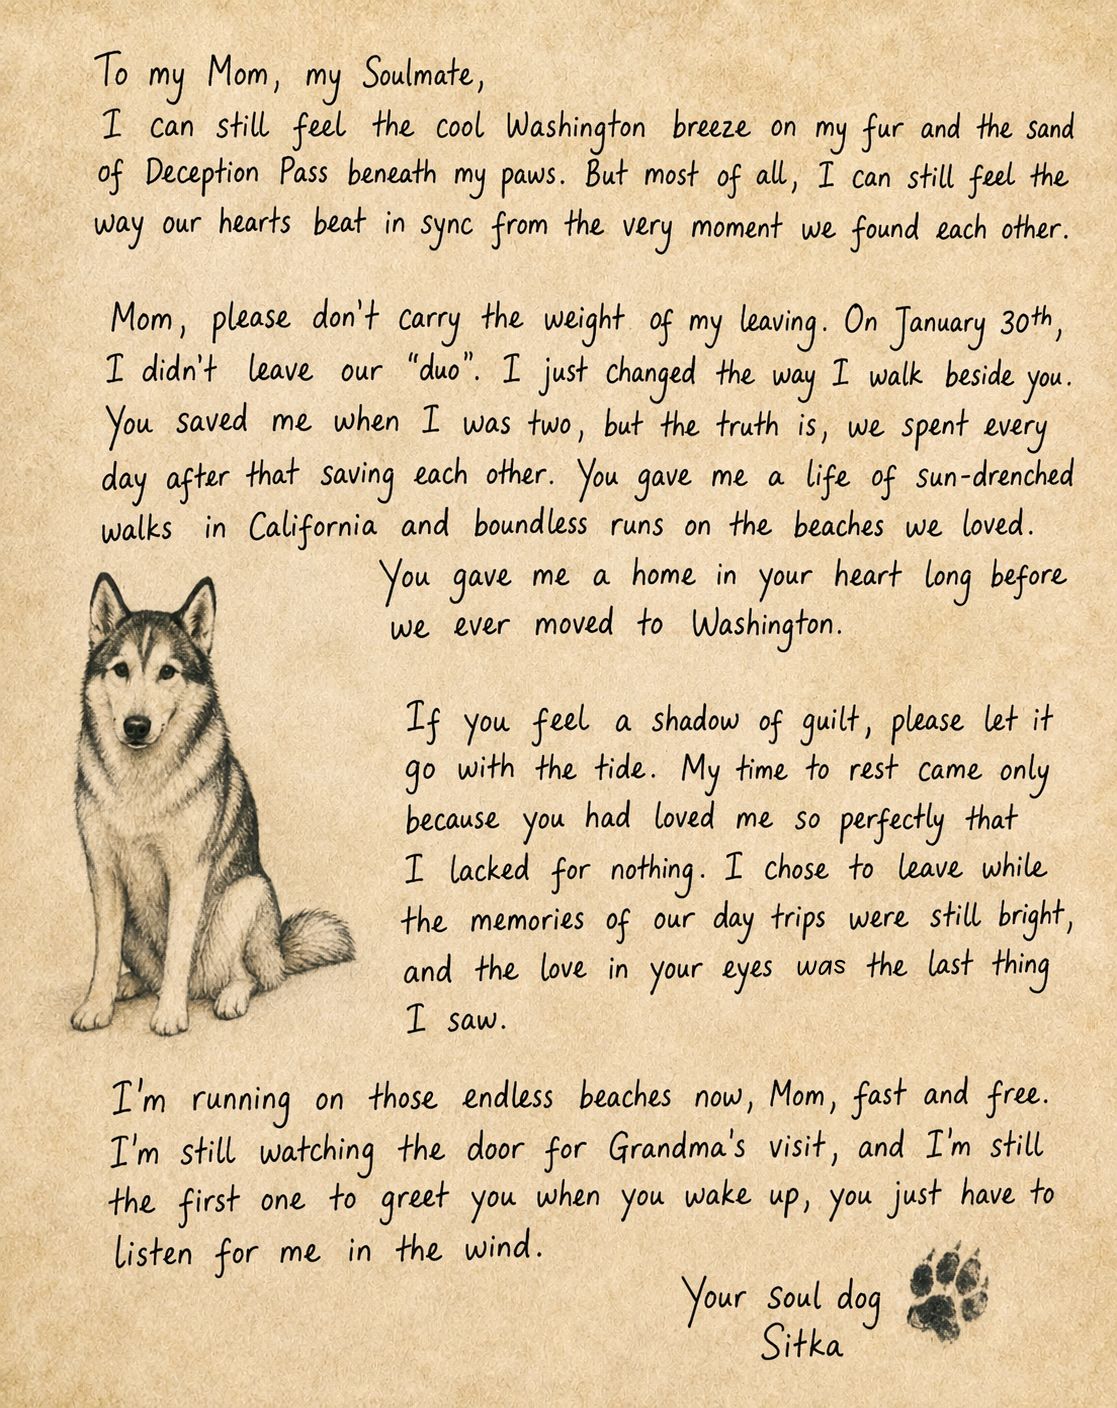 To my Mom, my Soulmate,
I can still feel the cool Washington breeze on my fur and the sand
of Deception Pass beneath my paws. But most of all, I can still feel the
way our hearts beat in sync from the very moment we found each other.
Mom, please don't carry the weight of my leaving. On January 30th,
I didn't leave our "duo". I just changed the way I walk beside you.
You saved me when I was two, but the truth is, we spent every
day after that saving each other. You gave me a life of sun-drenched
walks in California and boundless runs on the beaches we loved.
You gave me a home in your heart long before
we ever moved to Washington.
If you feel a shadow of guilt, please let it
go with the tide. My time to rest came only
because you had loved me so perfectly that
I lacked for nothing. I chose to leave while
the memories of our day trips were still bright,
and the love in your eyes was the last thing
I saw.
I'm running on those endless beaches now, Mom, fast and free.
I'm still watching the door for Grandma's visit, and I'm still
the first one to greet you when you wake up, you just have to
listen for me in the wind.
Your soul dog
Sitka